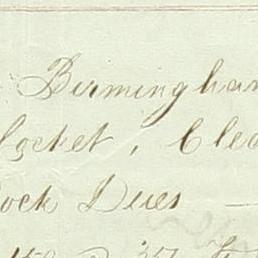 Birmingham
Cocket, Clea
ock Dues